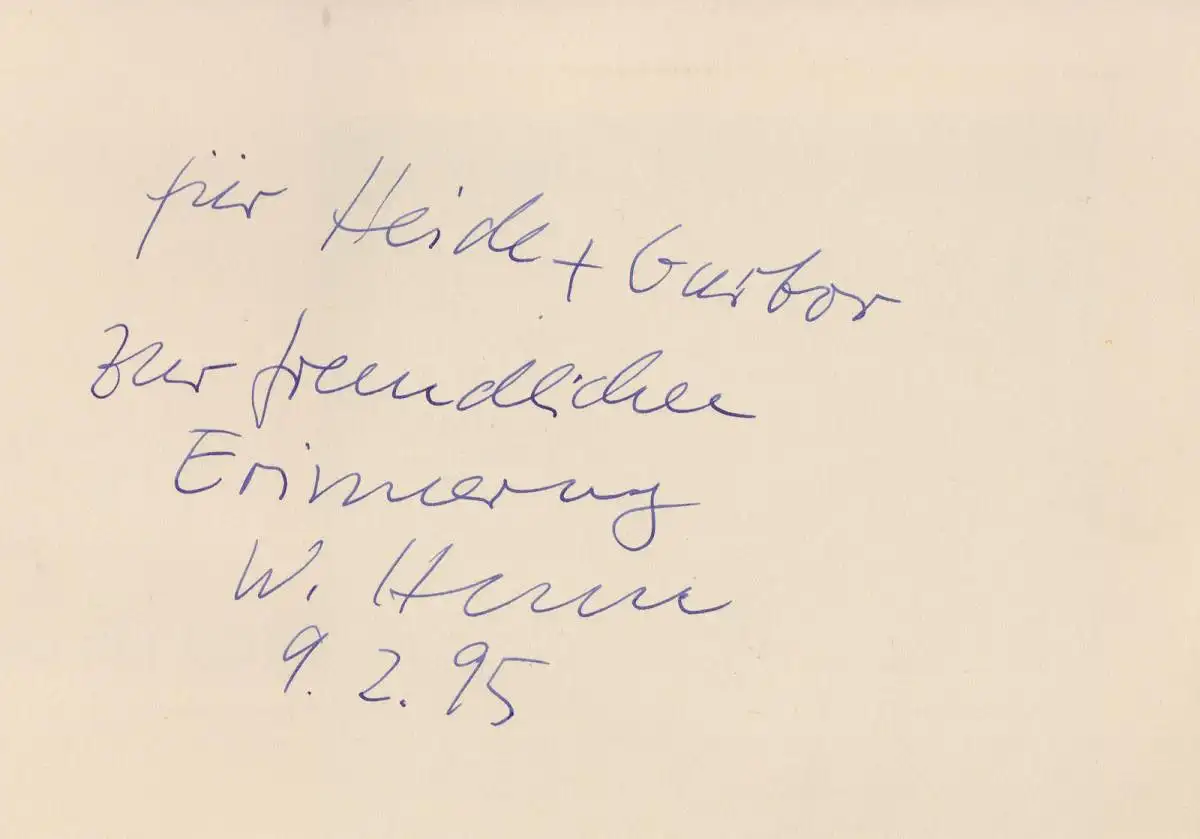 für Heide + Gusbor
zur freundlichen
Erinnerung
W.
9. 2. 95